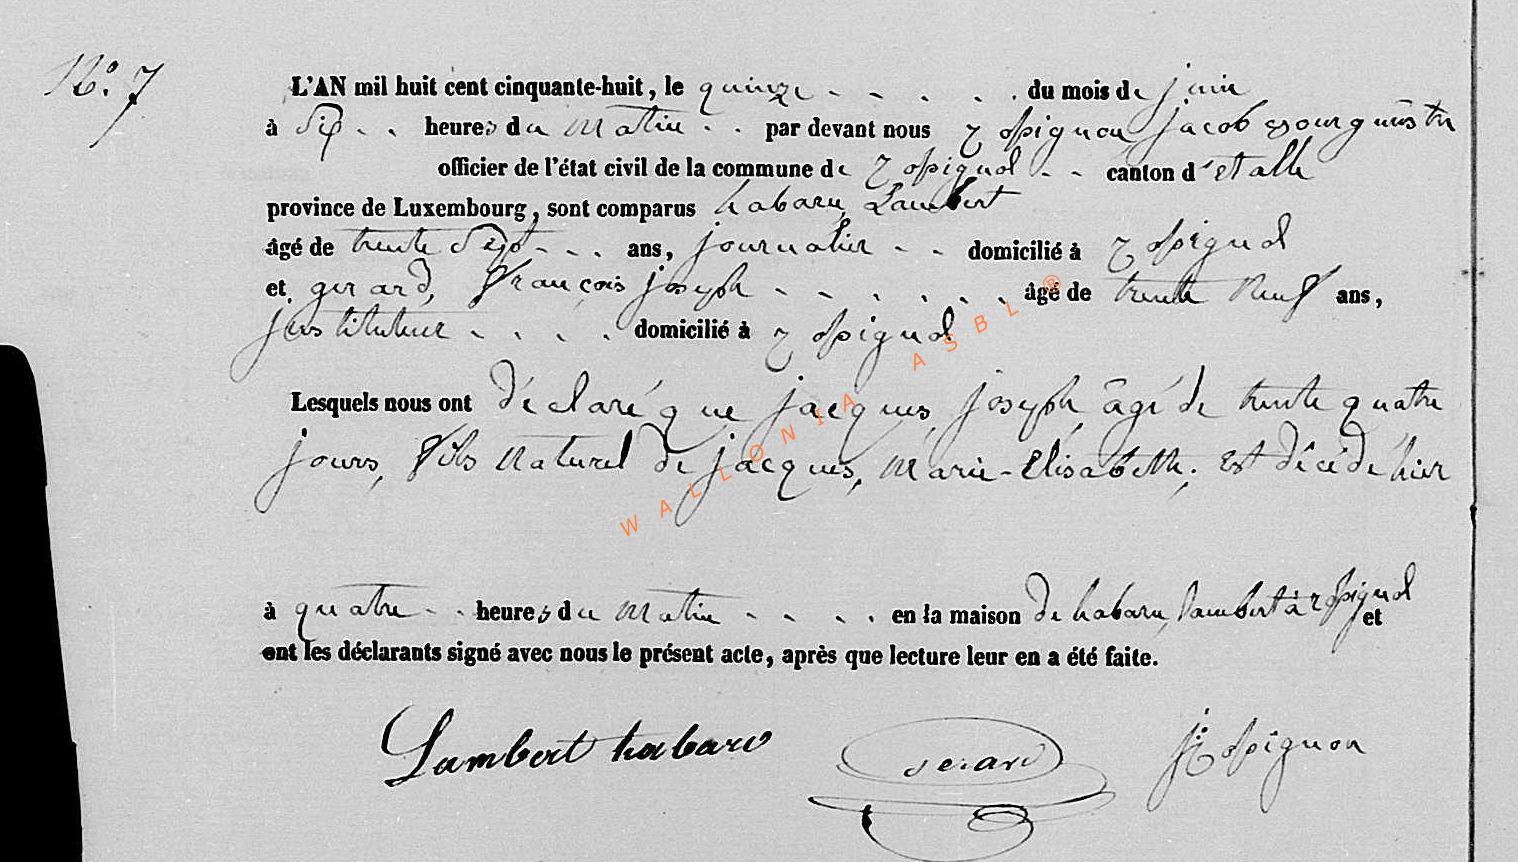 N.o 7
L'AN mil huit cent cinquante-huit, le quinze - - . . . . du mois de juin
à Six - . heures du matin - . par devant nous Rossignon, jacob Bourgmestre
officier de l'état civil de la commune de Rossignol - - canton d'etalle
province de Luxembourg, sont comparus habaru Lambert
âgé de trente Sept - . . ans, journalier - - domicilié à Rossignol
et gerard, François joseph - - . . . . . âgé de trente Neuf ans,
justituteur - . . . domicilié à Rossignol
Lesquels nous ont déclaré que jacques, joseph, âgé de trente quatre
jours, fils naturel de jacques, marie-Elisabeth; est décédé hier
à quatre - . heures du matin - - . . en la maison de habaru, lambert à Rossignol et
ont les déclarants signé avec nous le présent acte, après que lecture leur en a été faite.
Lambert habaru gerard J Rossignon
WALLONIA ASBL ®